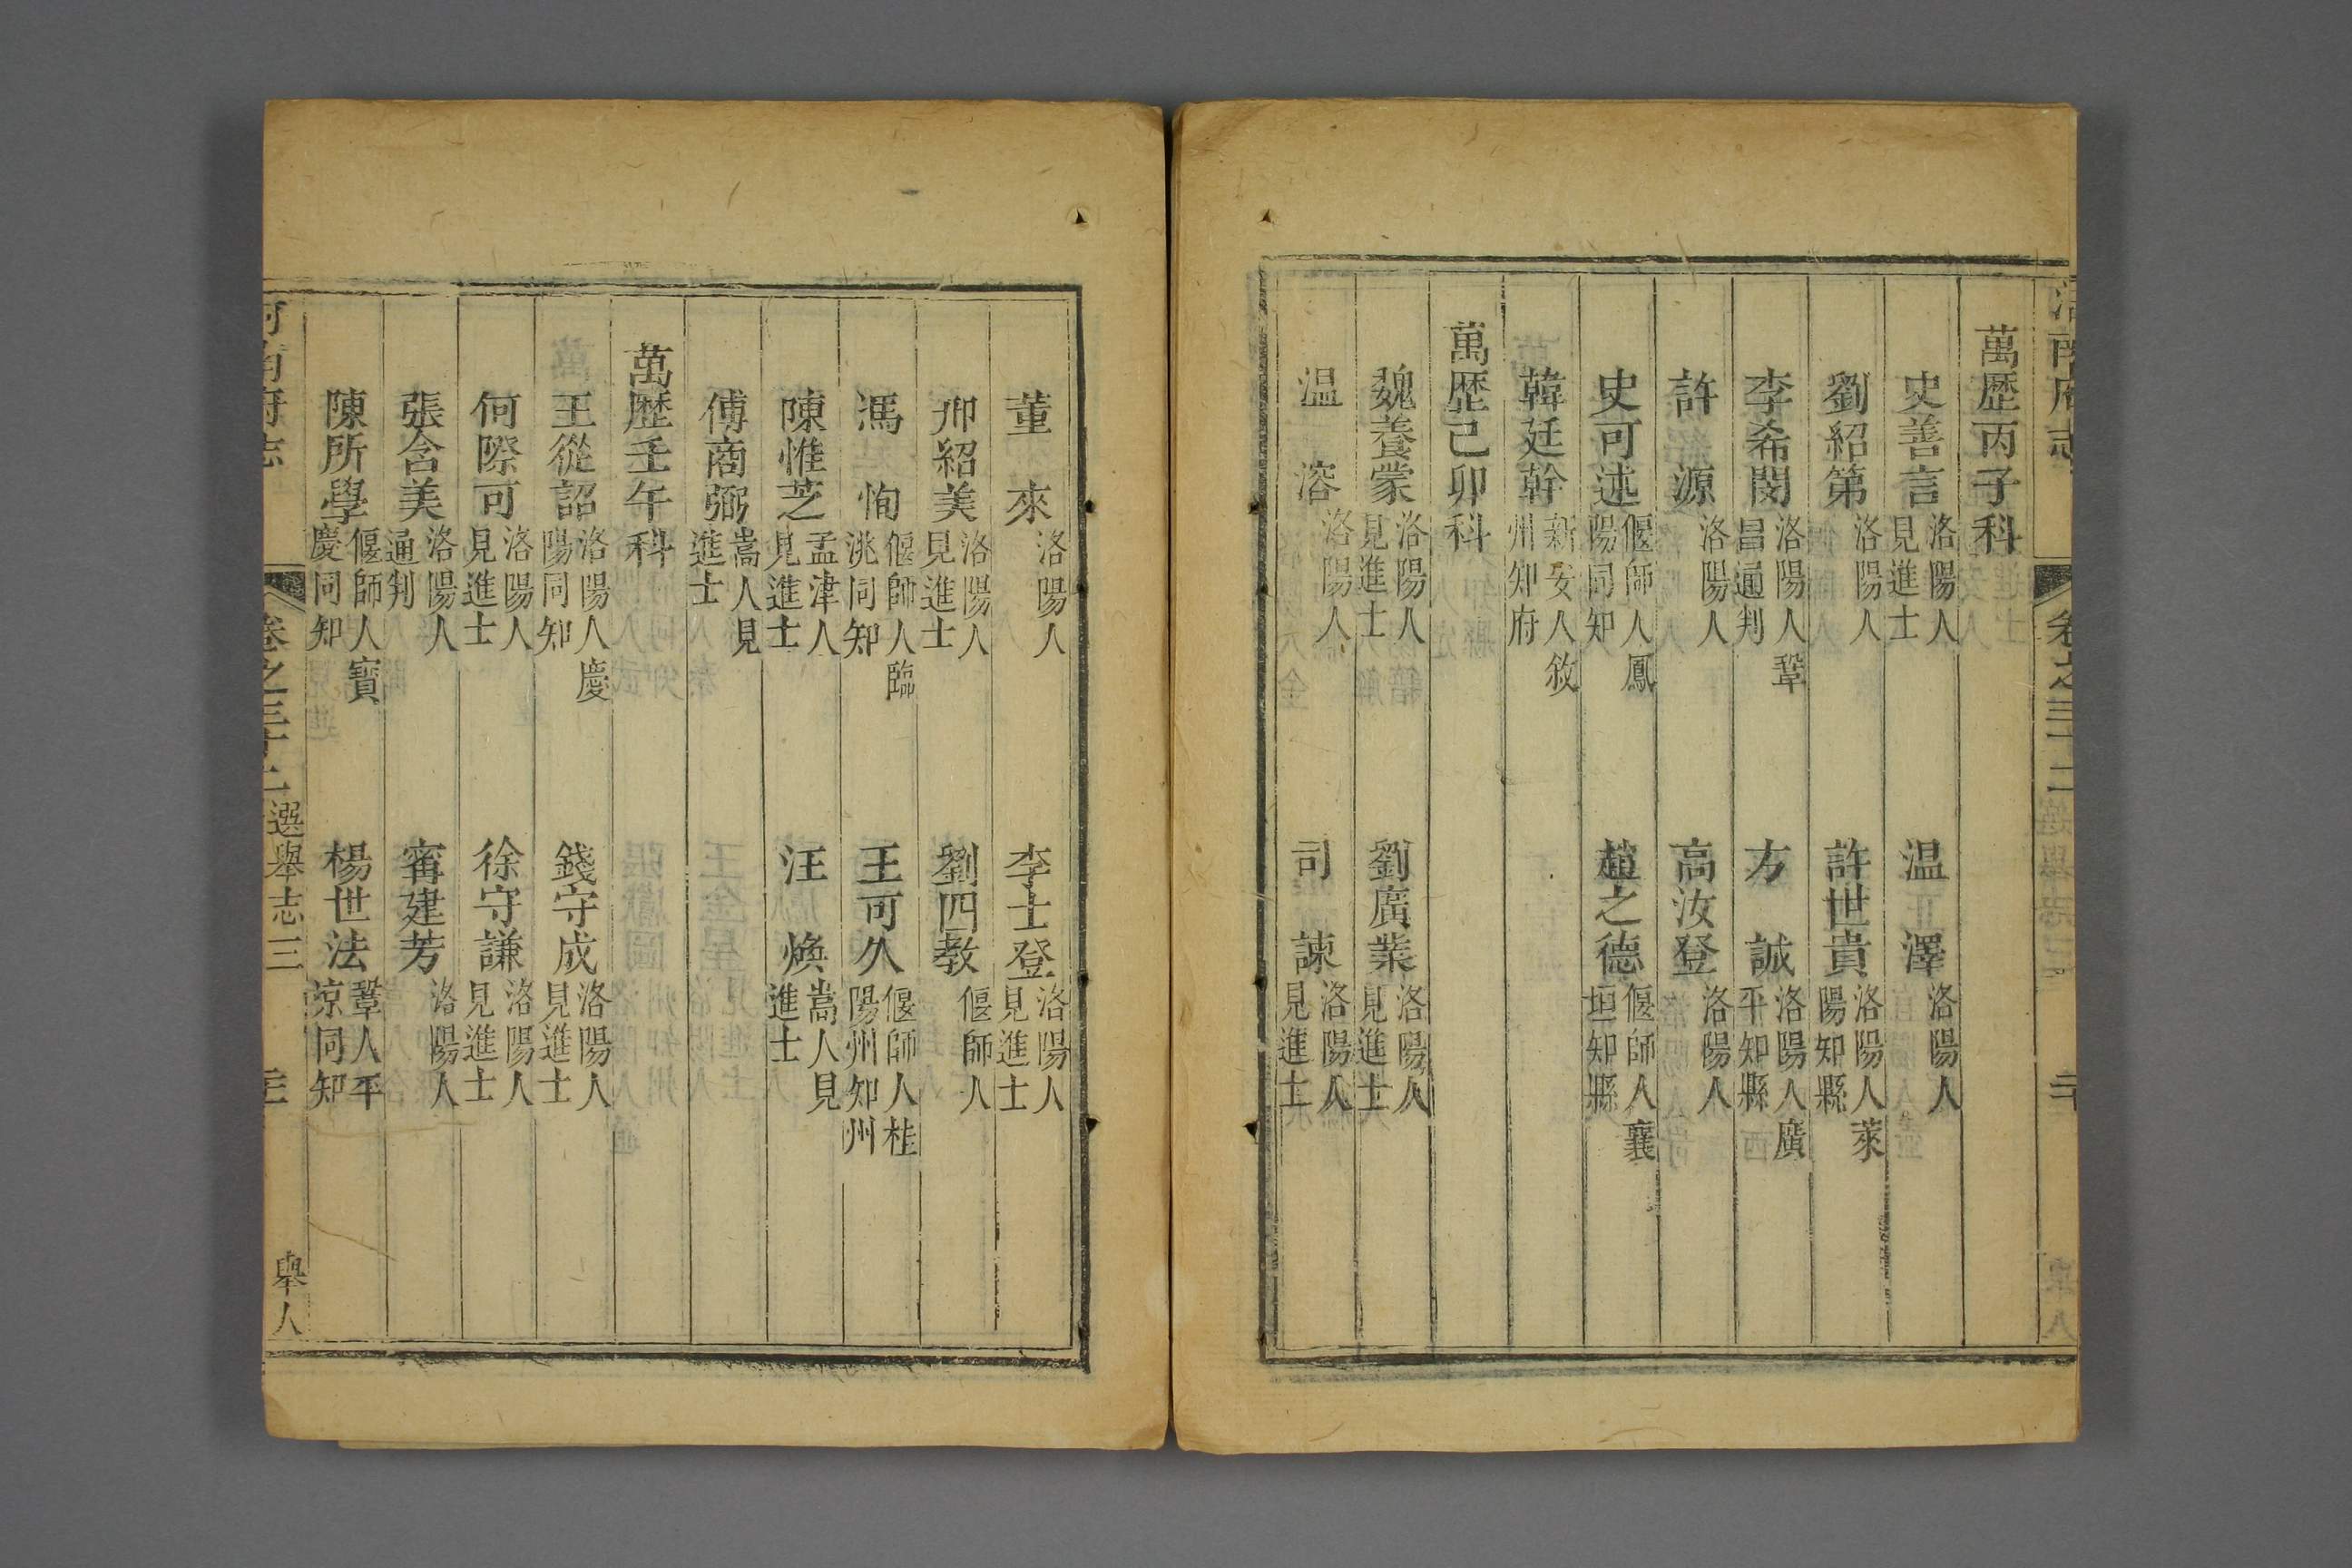 萬歷丙子科
史善言 洛陽人見進士 温澤 洛陽人
劉紹第 洛陽人 許世貴 洛陽人萊陽知縣
李希閔 洛陽人鞏昌通判 方誠 洛陽人廣平知縣
許源 洛陽人 高汝登 洛陽人
史可述 偃師人鳳陽同知 趙之德 偃師人襄垣知縣
韓廷幹 新安人敘州知府
萬歷己卯科
魏養蒙 洛陽人見進士 劉廣業 洛陽人見進士
温溶 洛陽人 司諫 洛陽人見進士
董來 洛陽人 李士登 洛陽人見進士
卭紹美 洛陽人見進士 劉四教 偃師人
馮恂 偃師人臨洮同知 王可久 偃師人桂陽州知州
陳惟芝 孟津人見進士 汪煥 嵩人見進士
傅商弼 嵩人見進士
萬歷壬午科
王從詔 洛陽人慶陽同知 錢守成 洛陽人見進士
何際可 洛陽人見進士 徐守謙 洛陽人見進士
張含美 洛陽人通判 甯建芳 洛陽人
陳所學 偃師人寶慶同知 楊世法 鞏人平涼同知
河南府志 卷之三十二 選舉志三 舉人